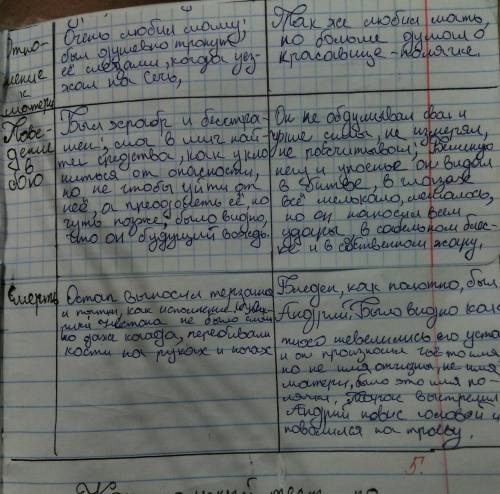 Отно-
шение
к
матери
Очень любил маму;
был душевно тронут
её слезами, когда уез-
жал на Сечь,
Так же любил мать,
но больше думал о
красавице-полячке.
Пове-
дение
в
бою
Был храбр и бесстра-
шен, мог в миг най-
ти средства, как укло
ниться от опасности,
но не чтобы уйти от
неё, а преодолеть её, но
чуть позже, было видно,
что он будущий вождь.
Он не обдумывал свои и
чужие силы, не измерял,
не рассчитывал; Бешеную
негу и упоенье он видел
в битве, в глазах
всё мелькало, металось,
но он наносил всем
удары, в сабельном блес-
ке и в собственном жару,
Смерть
Остап выносил терзания
и пытки, как исполин
крики и стона не было слыш
но даже когда, перебивали
кости на руках и ногах
Бледен, как полотно, был
Андрий. Было видно как
тихо шевелились его уста
и он произносил чьё-то имя
но не имя отчизны, не имя
матери, было это имя по-
лячки, Тарас выстрелил
Андрий повис головой и
повалился на траву.
5.